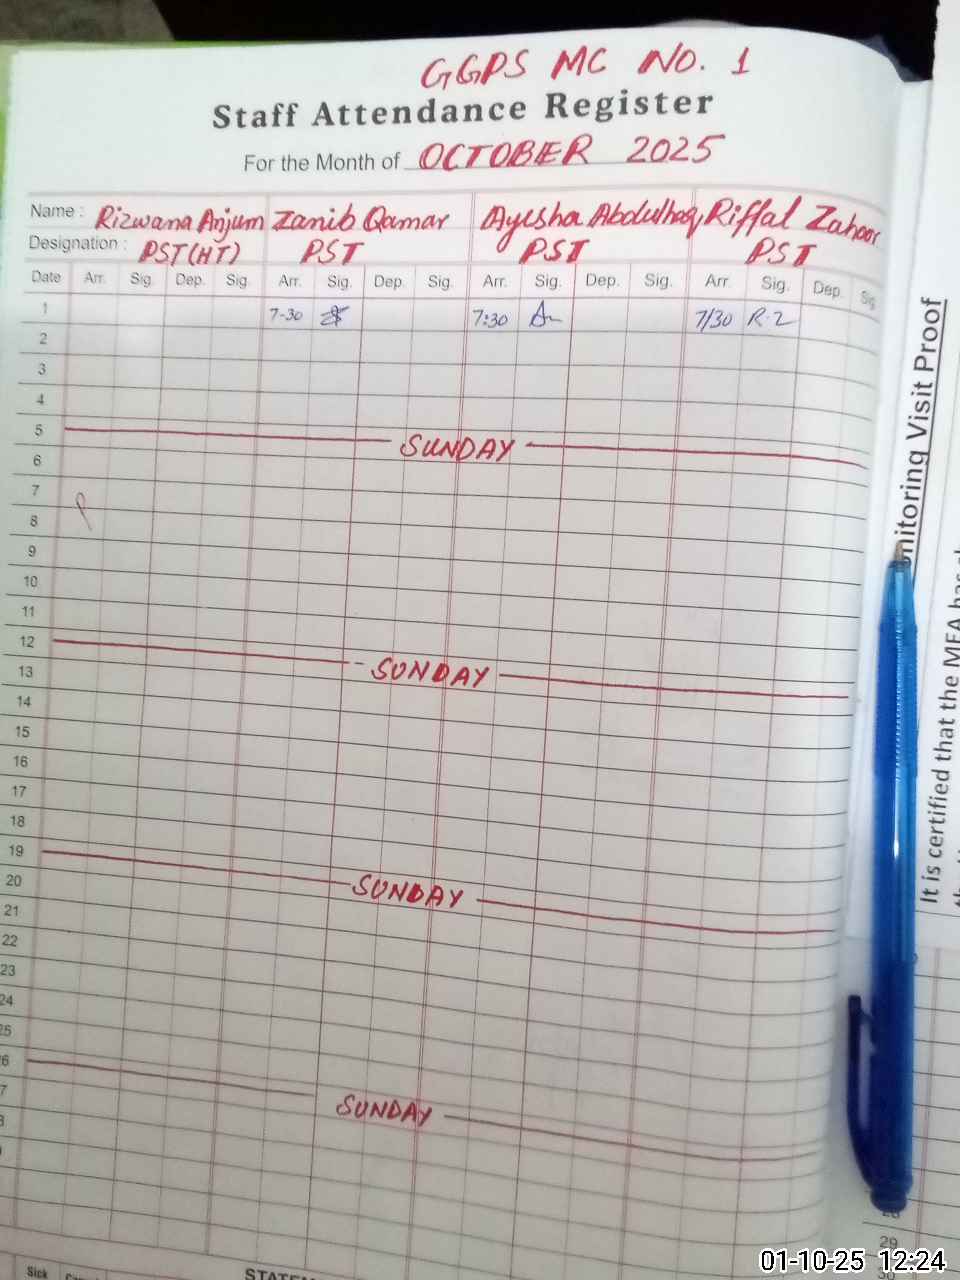 GGPS MC NO. 1
Staff Attendance Register
For the Month of OCTOBER 2025
Name : Rizwana Anjum Zanib Qamar Ayesha Abdulhaq Riffal Zahoor
Designation : PST(HT) PST PST PST
Date Arr. Sig. Dep. Sig. Arr. Sig. Dep. Sig. Arr. Sig. Dep. Sig. Arr. Sig. Dep. Sig
1 7-30 7:30 7/30 R-Z
2
3
4
5 SUNDAY
6
7
8
9
10
11
12 SUNDAY
13
14
15
16
17
18
19
20 SUNDAY
21
22
23
24
25
26
SUNDAY
Sick
STATEM
nitoring Visit Proof
It is certified that the MEA has
29
30
01-10-25 12:24